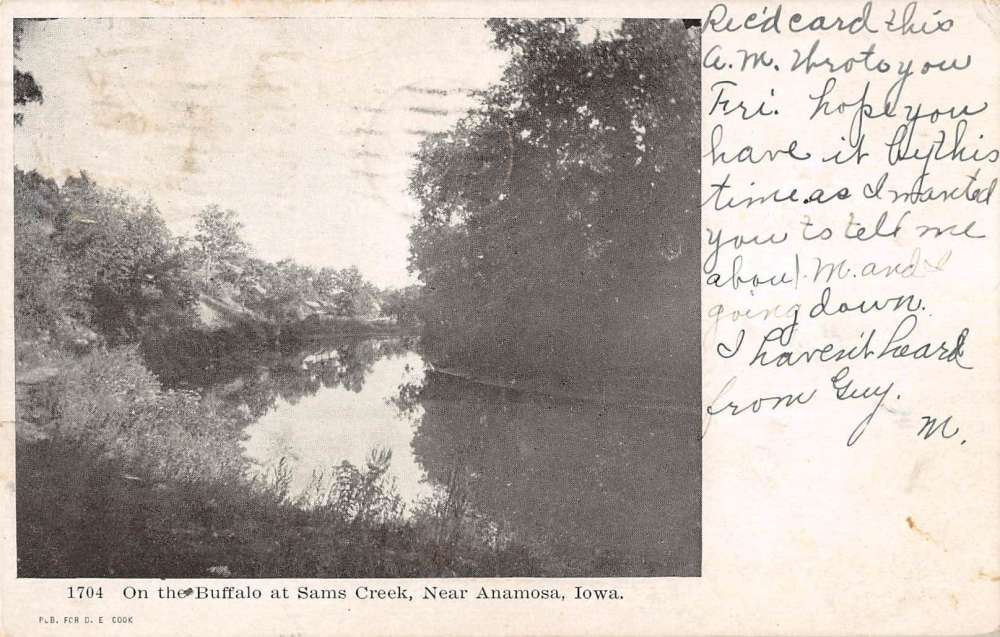 Rec'd card this
A.M. Wrote you
Fri. hope you
have it by this
time as I wanted
you to tell me
about M. and I
going down.
I haven't heard
from Guy.
M.
1704 On the Buffalo at Sams Creek, Near Anamosa, Iowa.
PUB. FOR D. E. COOK